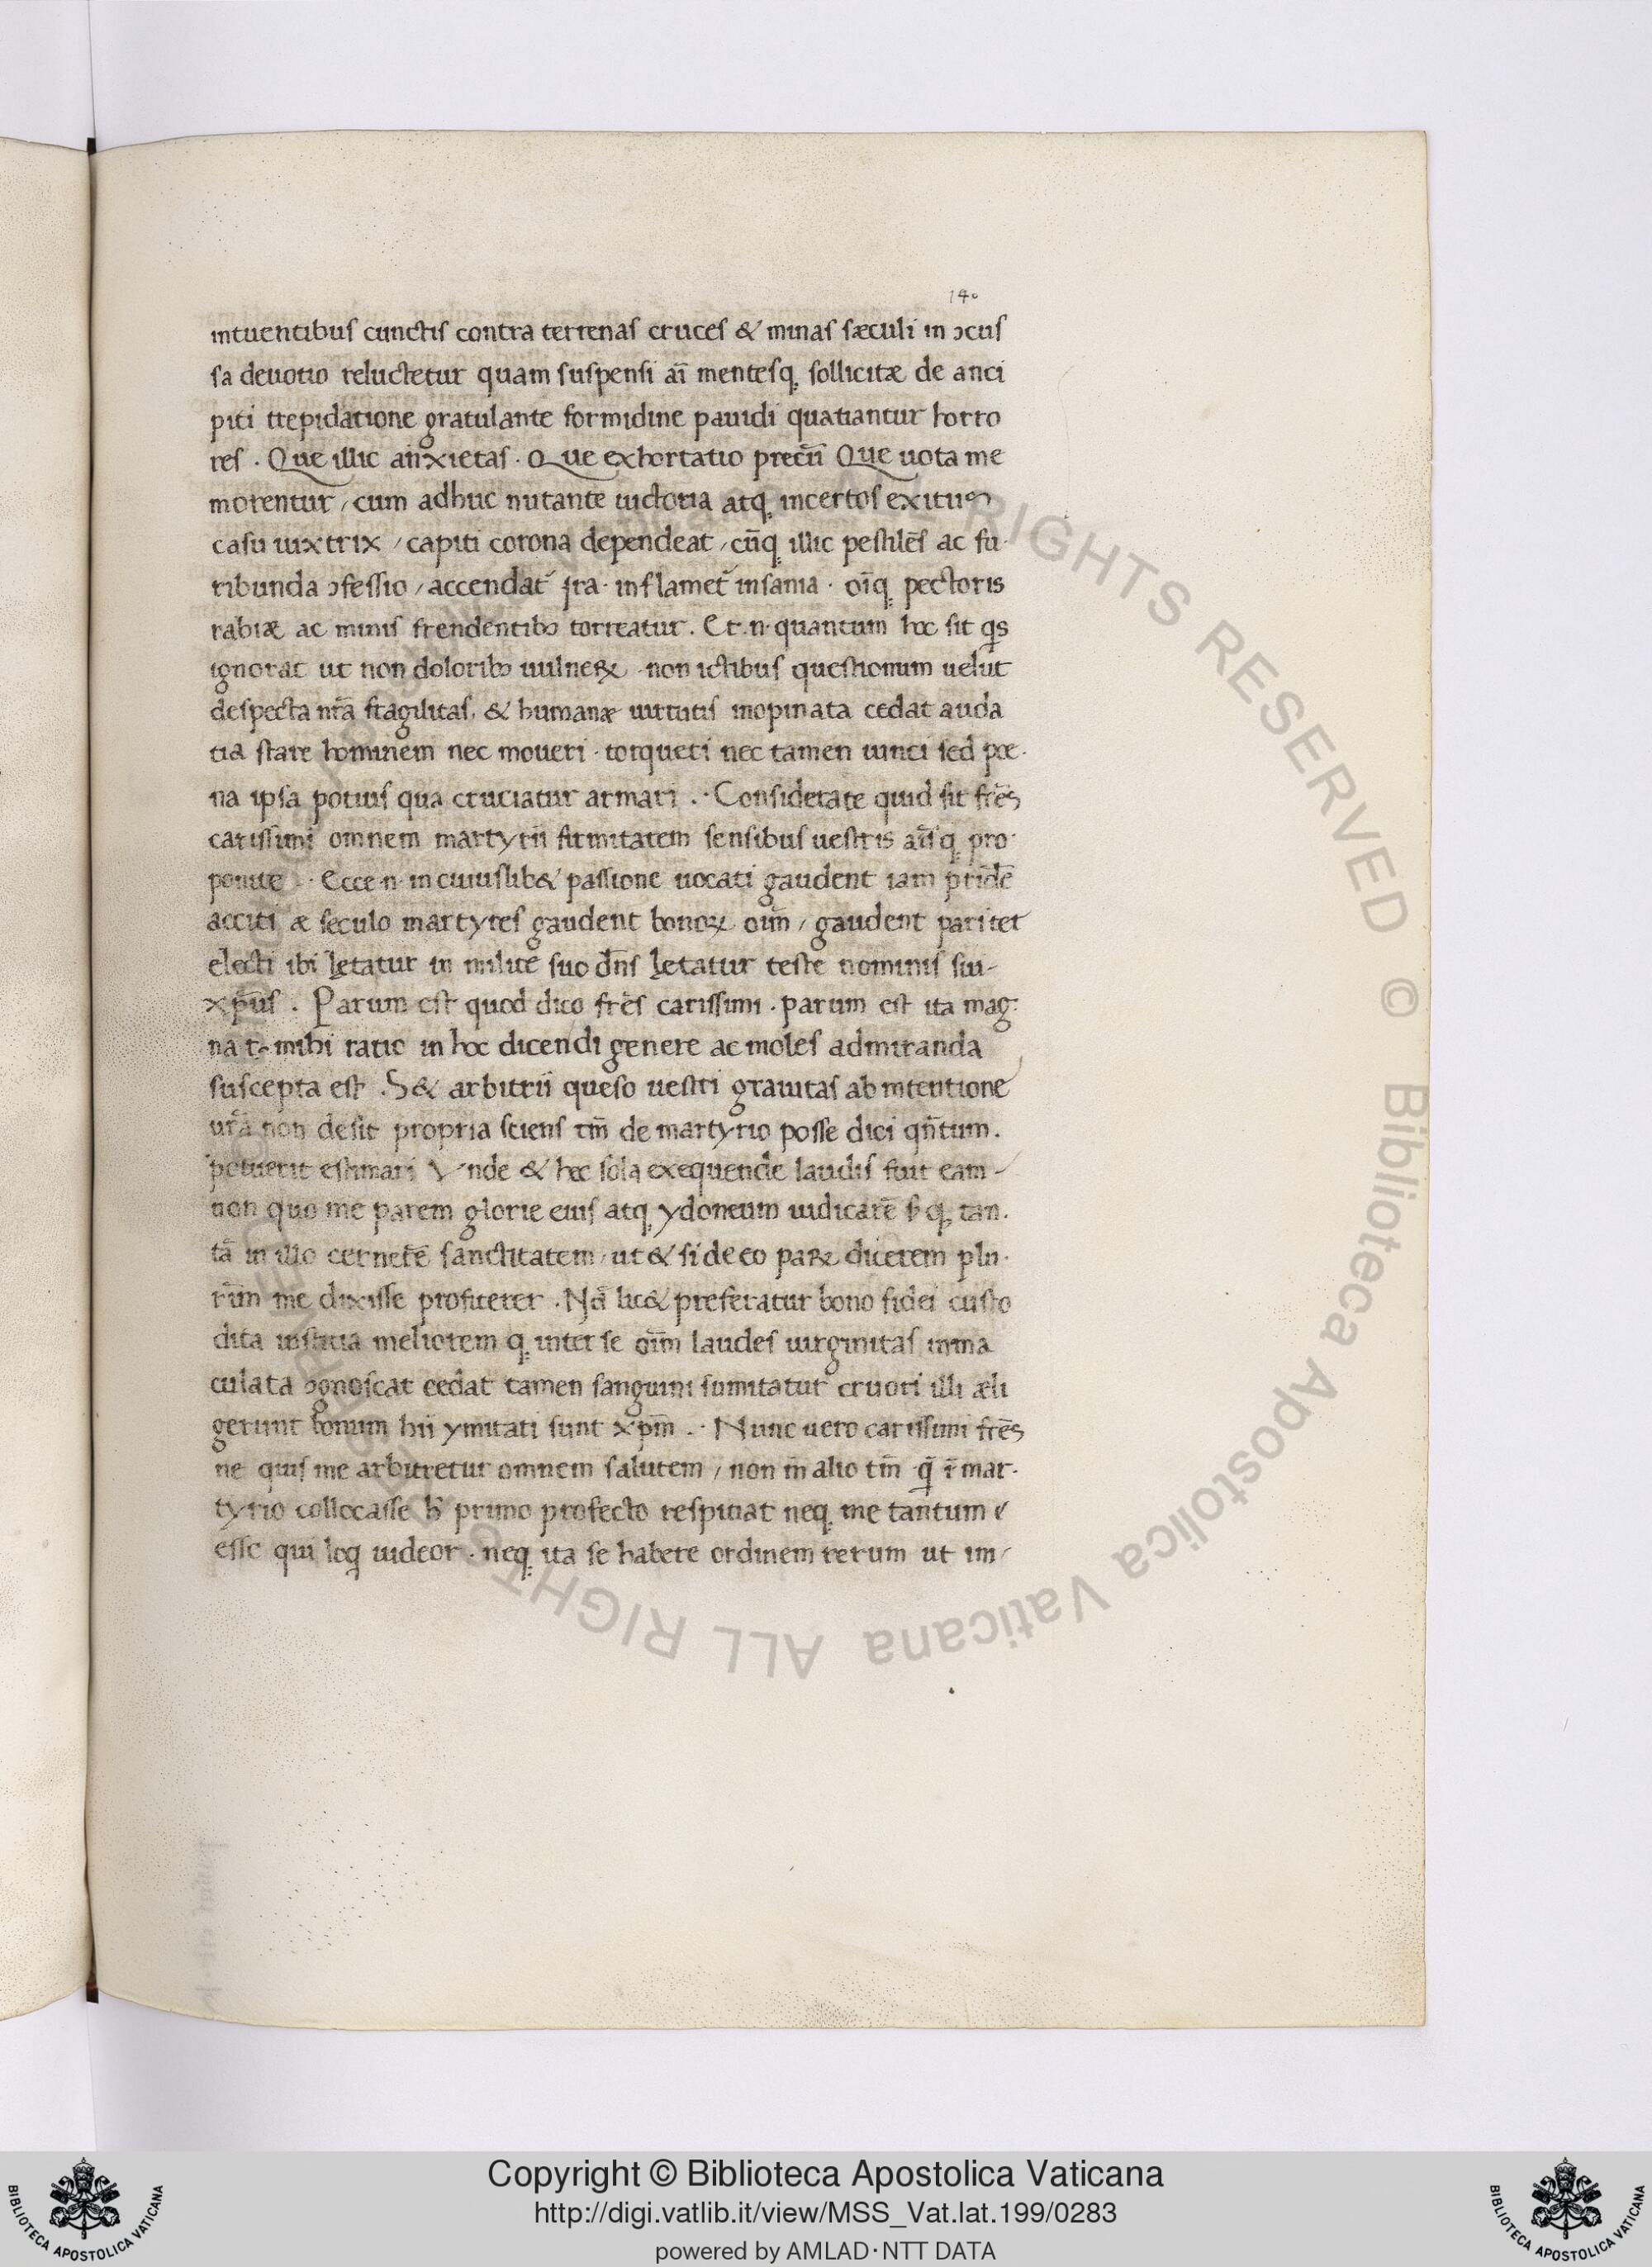 140
intuentibus cunctis contra terrenas cruces & minas sæculi in ɔcus
sa deuotio reluctetur quam suspensi aī mentesq; sollicitæ de anci
piti trepidatione gratulante formidine pauidi quatiantur horro
res . Que illic anxietas . Que exhortatio precū Que uota me
morentur / cum adhuc nutante uictoria atq; incertos exitus
casu uixtrix / capiti corona dependeat / cūq; illic pestilēs ac fu-
ribunda ɔfessio / accendat᷑ ira · inflamet᷑ insania · oīq; pectoris
rabiæ ac minis frendentibꝫ torreatur . Et .n. quantum hoc sit qs
ignorat ut non doloribꝫ uulneꝝ · non ictibus questionum uelut
despecta nrā fragilitas , & humanæ uirtutis inopinata cedat auda
tia stare hominem nec moueri · torqueri nec tamen uinci sed pœ-
na ipsa potius qua cruciatur armari .· Considerate quid sit frēs
carissimi omnem martyrii firmitatem sensibus uestris aīsq; pro-
ponite .· Ecce .n. in cuiuslib& passione uocati gaudent iam pridē
acciti æ seculo martyres gaudent bonoꝝ oīm / gaudent pariter
electi ibi letatur in milite suo dn̄s letatur teste nominis sui-
xp̄us . Parum est quod dico frēs carissimi . parum est ita mag-
na t. mihi ratio in hoc dicendi genere ac moles admiranda
suscepta est . S& arbitrii queso uestri grauitas ab intentione
urā non desit propria sciens tm̄ de martyrio posse dici qn̄tum .
potuerit estimari Vnde & hec sola exequende laudis fuit eam -
non quo me parem glorie eius atq; ydoneum iudicarē sꝫ q; tan-
tā in illo cernerē sanctitatem / ut & si de eo paꝝ dicerem plu-
rīm me dixisse profiterer . Nā lic& preferatur bono fidei custo
dita iustitia meliorem q; inter se oīm laudes uirginitas inma
culata ɔgnoscat cedat tamen sanguini sumitatur cruori illi æli
gerunt bonum hii ymitati sunt xp̄m .· Nunc uero carissimi frēs
ne quis me arbitretur omnem salutem / non in alio tm̄ q̄ ī mar-
tyrio collocasse h̄ primo profecto respiciat neq; me tantum
esse qui loq uideor . neq; ita se habere ordinem rerum ut im-
ALL RIGHTS RESERVED © Biblioteca Apostolica Vaticana ALL RIGHTS
BIBLIOTECA APOSTOLICA VATICANA
Copyright © Biblioteca Apostolica Vaticana
http://digi.vatlib.it/view/MSS_Vat.lat.199/0283
powered by AMLAD·NTT DATA
BIBLIOTECA APOSTOLICA VATICANA